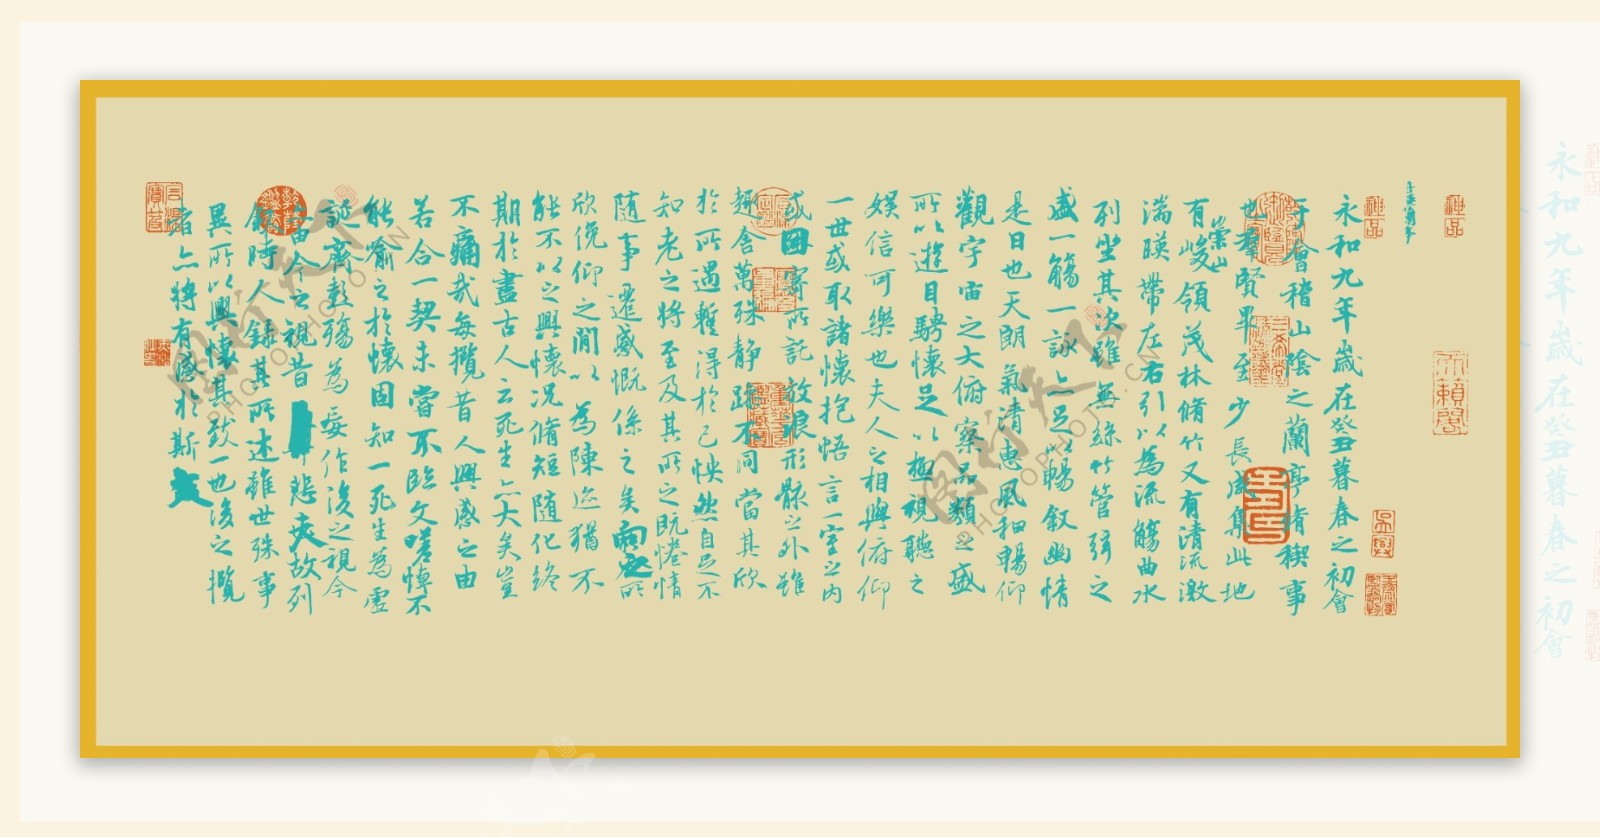 永和九年歲在癸丑暮春之初會
于會稽山陰之蘭亭脩稧事
也群賢畢至少長咸集此地
有崇山峻領茂林脩竹又有清流激
湍暎帶左右引以為流觴曲水
列坐其次雖無絲竹管弦之
盛一觴一詠亦足以暢敘幽情
是日也天朗氣清惠風和暢仰
觀宇宙之大俯察品類之盛
所以遊目騁懷足以極視聽之
娛信可樂也夫人之相與俯仰
一世或取諸懷抱悟言一室之內
或因寄所託放浪形骸之外雖
趣舍萬殊靜躁不同當其欣
於所遇暫得於己怏然自足不
知老之將至及其所之既惓情
隨事遷感慨係之矣向之所
欣俛仰之間以為陳迹猶不
能不以之興懷況脩短隨化終
期於盡古人云死生亦大矣豈
不痛哉每攬昔人興感之由
若合一契未嘗不臨文嗟悼不
能喻之於懷固知一死生為虛
誕齊彭殤為妄作後之視今
由今之視昔悲夫故列
敘時人錄其所述雖世殊事
異所以興懷其致一也後之攬
者亦將有感於斯文
神品
神品
永和九年歲在癸丑暮春之初會
PHOTOPHOTO.CN
PHOTOPHOTO.CN